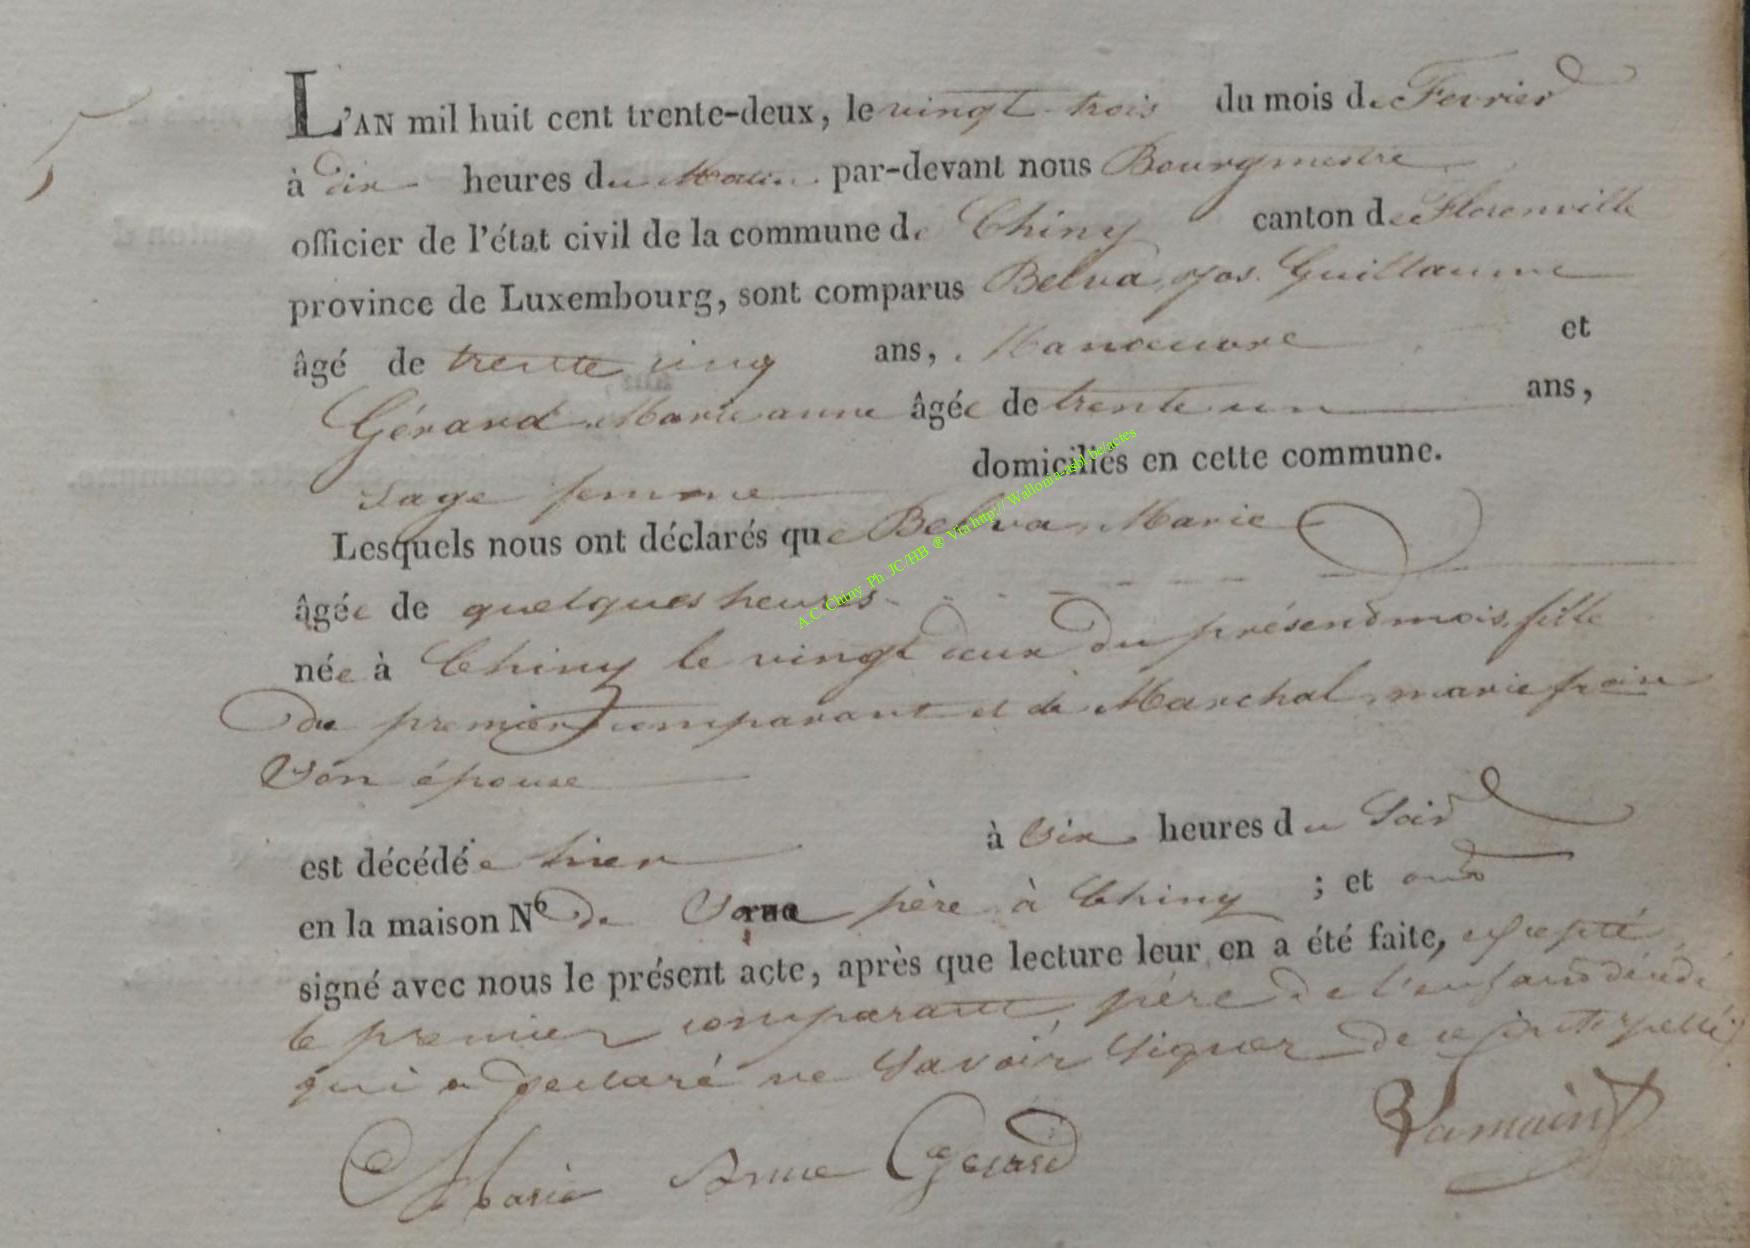 5
L'AN mil huit cent trente-deux, le vingt trois du mois de Fevrier
à dix heures du Matin par-devant nous Bourgmestre
officier de l'état civil de la commune de Chiny canton de Florenville
province de Luxembourg, sont comparus Belva, Jos. Guillaume
âgé de trente cinq ans, Manoeuvre et
Gérard Marie anne âgée de trente un ans,
sage femme domiciliés en cette commune.
Lesquels nous ont déclarés que Belva, Marie
âgée de quelques heures
née à Chiny le vingt deux du présent mois, fille
du premier comparant et de Marchal, marie
Son épouse
est décédée hier à Six heures du Soir
en la maison No de Son père à Chiny ; et ont
signé avec nous le présent acte, après que lecture leur en a été faite, excepté
le premier comparant père de l'enfant décédé
qui a declaré ne Savoir Signer de ce interpellé
Marie Anne Gerard
A.C. Chiny Ph JC/HB ® Via http://Wallonia-asbl.be/actes